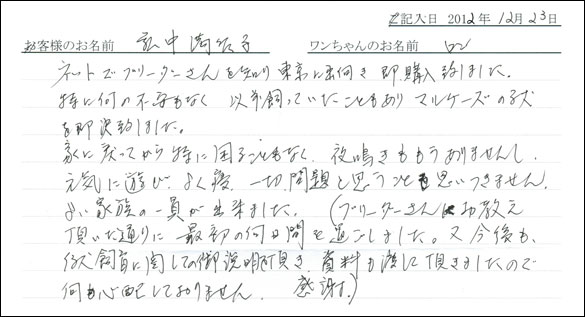 ご記入日 2012年 12月 23日
お客様のお名前 弘中 ワンちゃんのお名前
ネットでブリーダーさんを知り東京に出向き即購入致しました。
特に何の不安もなく 以前飼っていたこともあり マルチーズの子犬
を即決致しました。
家に戻ってから特に困ることもなく、夜鳴きももうありませんし、
元気に遊び、よく寝、一切問題と思うことも思いつきません。
よい家族の一員が出来ました。 (ブリーダーさんにお教え
頂いた通りに 最初の何日間を過ごしました。又今後も、
仔犬飼育に関しての御説明も頂き、資料も渡に頂きましたので
何も心配しておりません。 感謝。)